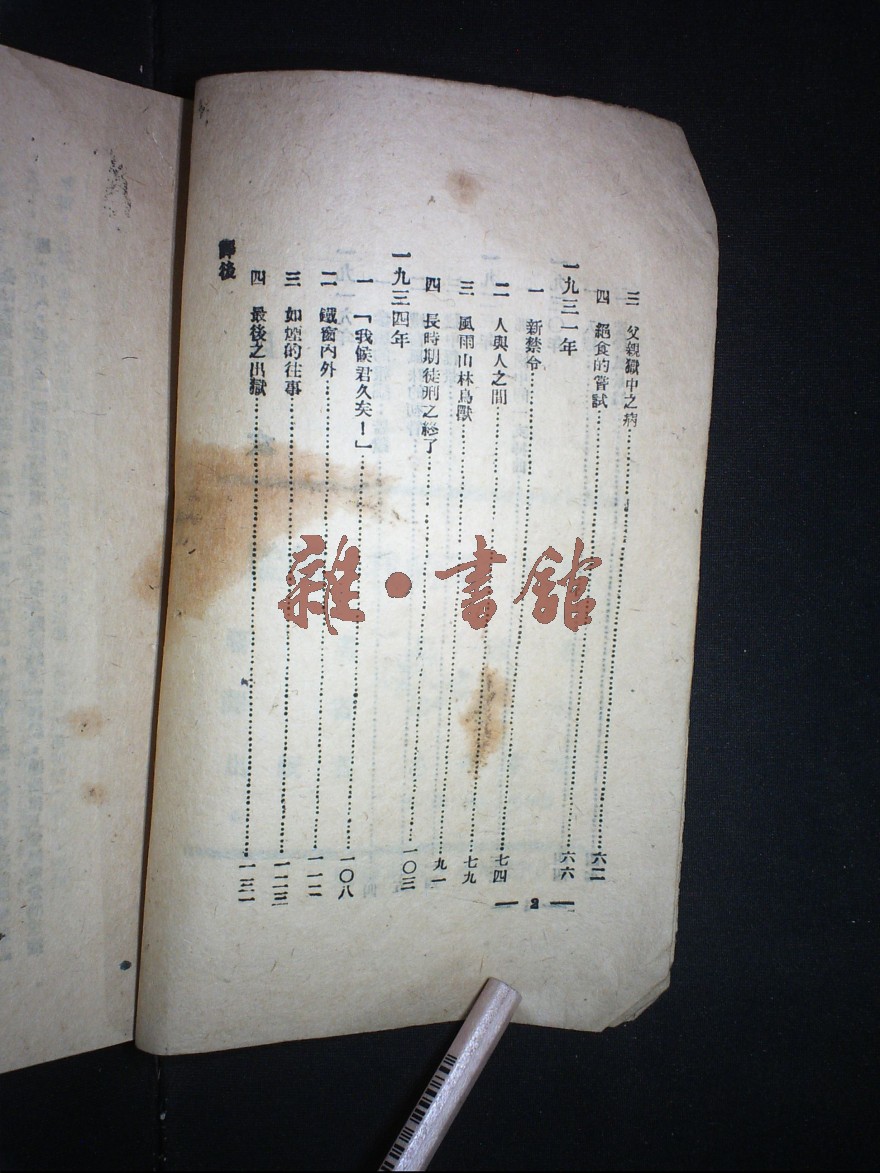 三 父親獄中之病……六二
四 絕食的嘗試……六六
一九三一年
一 新禁令……七四
二 人與人之間……七九
三 風雨山林鳥獸……九一
四 長時期徒刑之終了……一〇三
一九三四年
一 「我候君久矣!」……一〇八
二 鐵窗內外……一一二
三 如煙的往事……一二三
四 最後之出獄……一三一
譯後
— 2 —
雜·書館